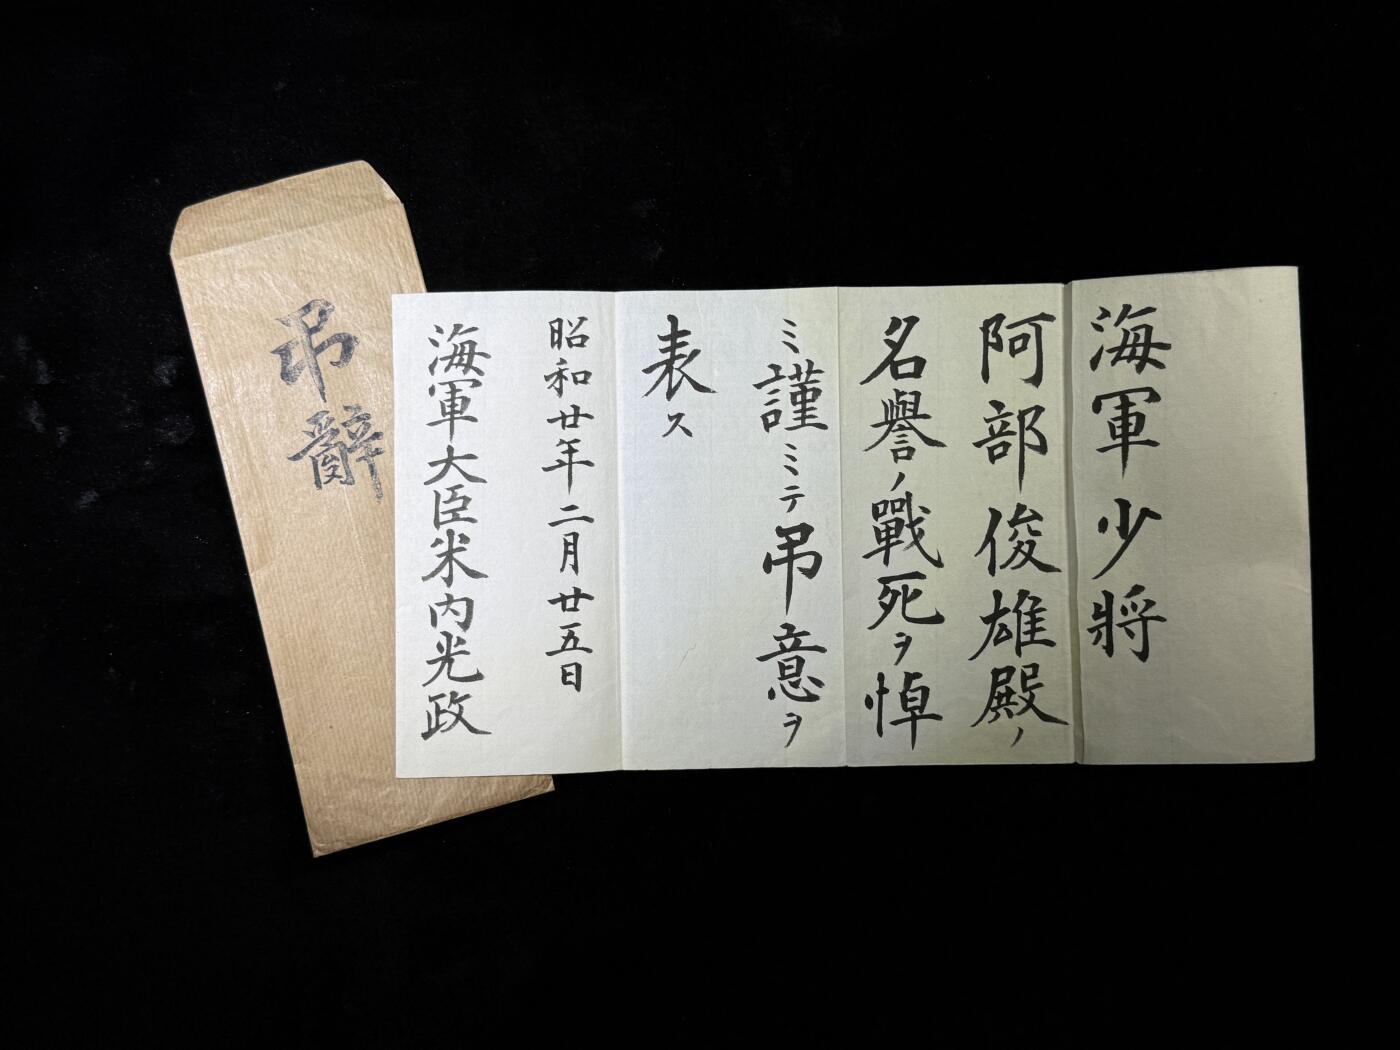 海軍少將
阿部俊雄殿ノ
名譽ノ戰死ヲ悼
ミ謹ミテ弔意ヲ
表ス
昭和廿年二月廿五日
海軍大臣米内光政
弔辭